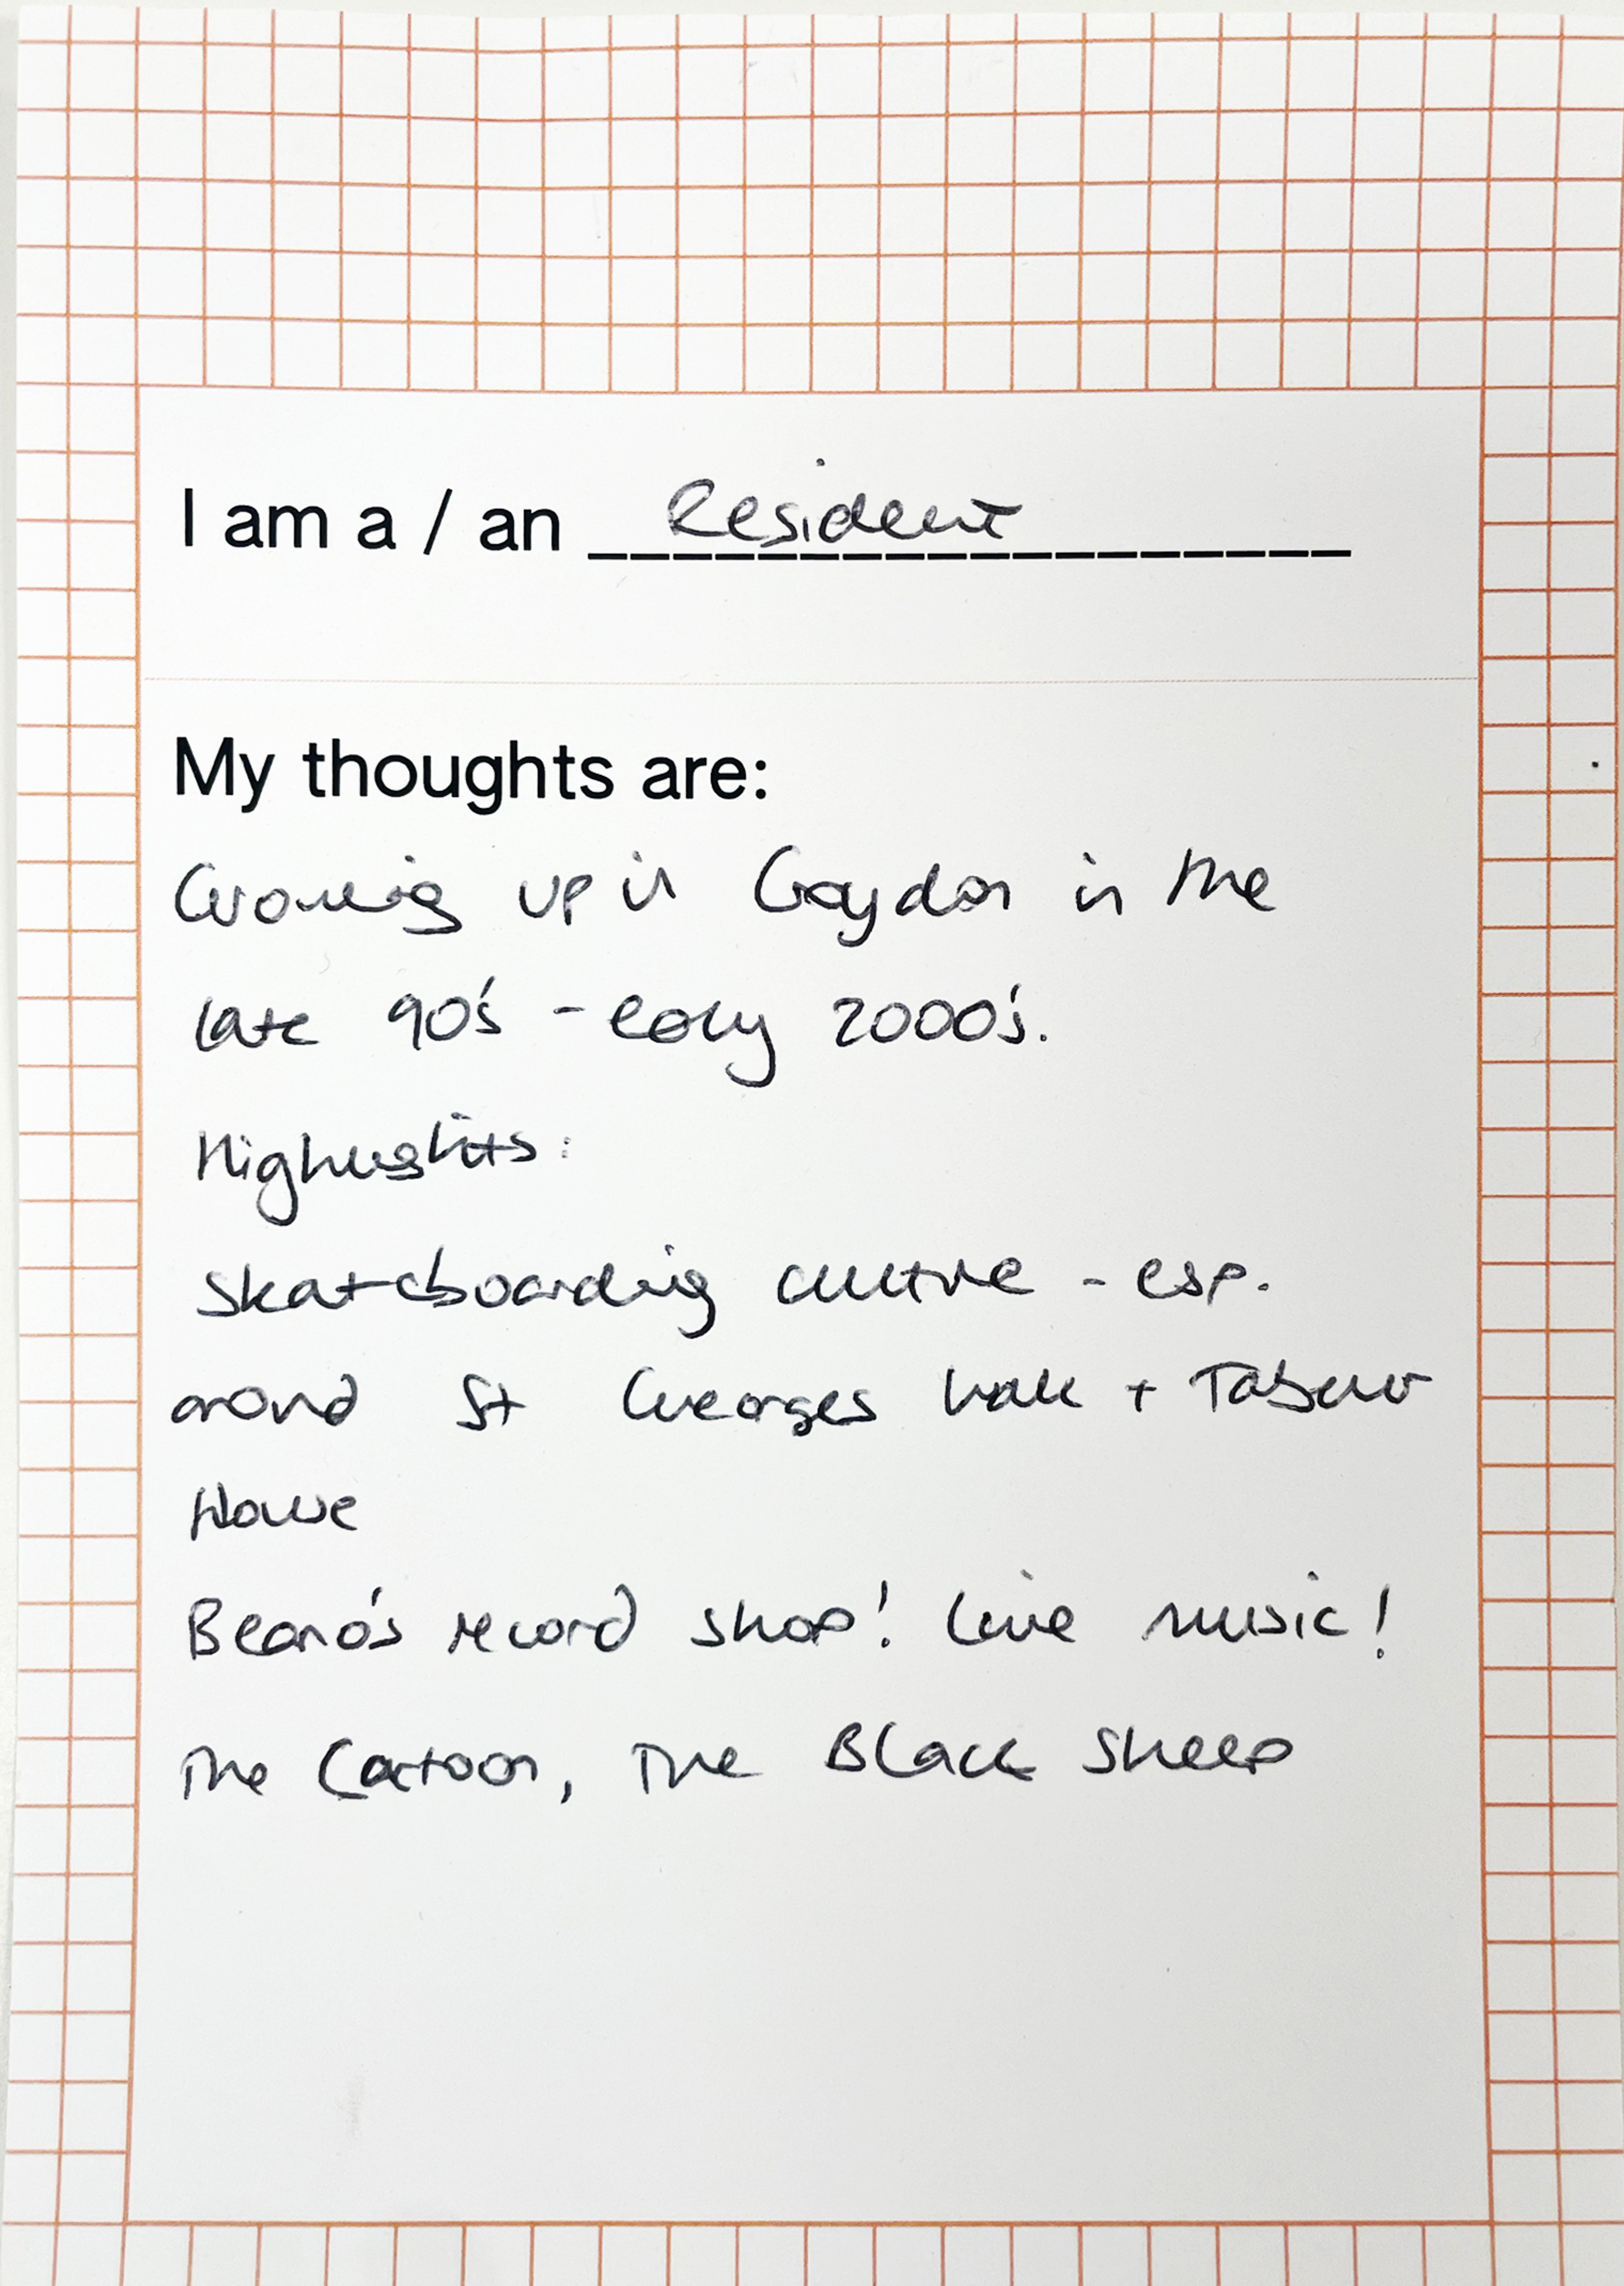 I am a / an Resident
My thoughts are:
Growing up in Croydon in the
late 90's - early 2000's.
Highlights:
Skateboarding culture - esp.
around St Georges Walk + Taberner
House
Beano's record shop! Live music!
The Cartoon, The Black Sheep